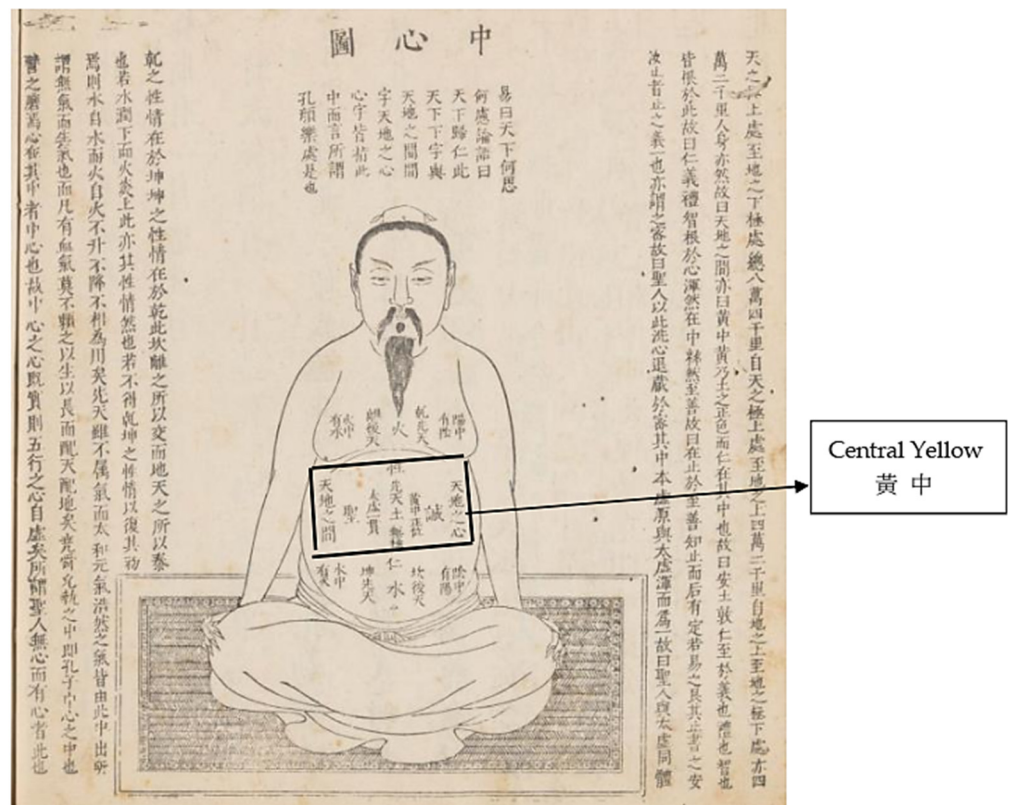 中心圖
天之極上處至地之下極處總八萬四千里自天之極上處至地之上四萬二千里自地之上至地之極下處亦四
萬二千里人身亦然故曰天地之間亦曰黃中黃乃土之正色而仁在其中也故曰安土敦仁至於義也禮也智也
皆根於此故曰仁義禮智根於心渾然在中粹然至善故曰在止於至善知止而后有定若易之艮其止書之安
汝止者止之之義一也亦謂之密故曰聖人以此洗心退藏於密其中本虛原與太虛渾而為一故曰聖人與太虛同體
易曰天下何思
何慮論語曰
天下歸仁此
天下下字與
天地之間間
字天地之心
心字皆指此
中而言所謂
孔顏樂處是也
陽中
有陰
乾先天
火
離後天
火中
有水
性
天地之心
誠
黃中正位
先天土無極
太虛一貫
聖
天地之間
仁
陰中
有陽
坎後天
水
坤先天
水中
有火
乾之性情在於坤坤之性情在於乾此坎離之所以交而地天之所以泰
也若水潤下而火炎上此亦其性情然也若不得乾坤之性情以復其初
焉則水自水而火自火不升不降不相為用矣先天雖不屬氣而太和元氣浩然之氣皆由此中出所
謂無氣而生氣也而凡有血氣莫不賴之以生以長而配天配地矣堯舜允執之中即孔子中心之中也
譬之磨焉心在其中者中心也故中心之心既實則五行之心自虛矣所謂聖人無心而有心者此也
Central Yellow
黃中